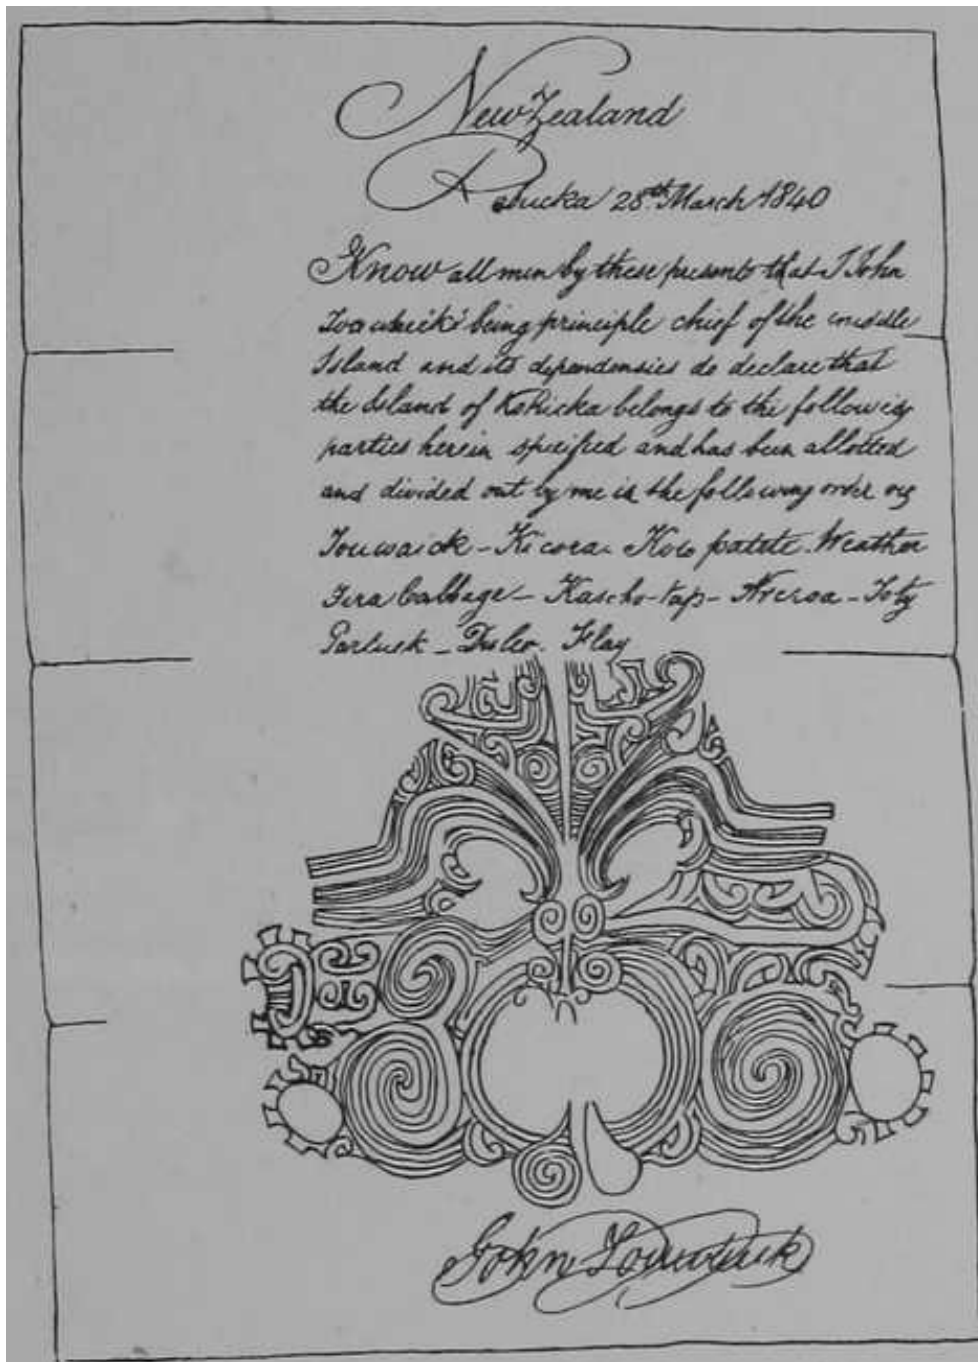 New Zealand
28th March 1840
Know all men by these presents that I John
being principle chief of the middle
Island and its dependensies do declare that
the Island of belongs to the following
parties herein specified and has been allotted
and divided out by me in the following order
Touwaick - Kicora. Kow patete. Weather
Cabbage - Kascho-tap - - Toby
Flag
John Touwaick